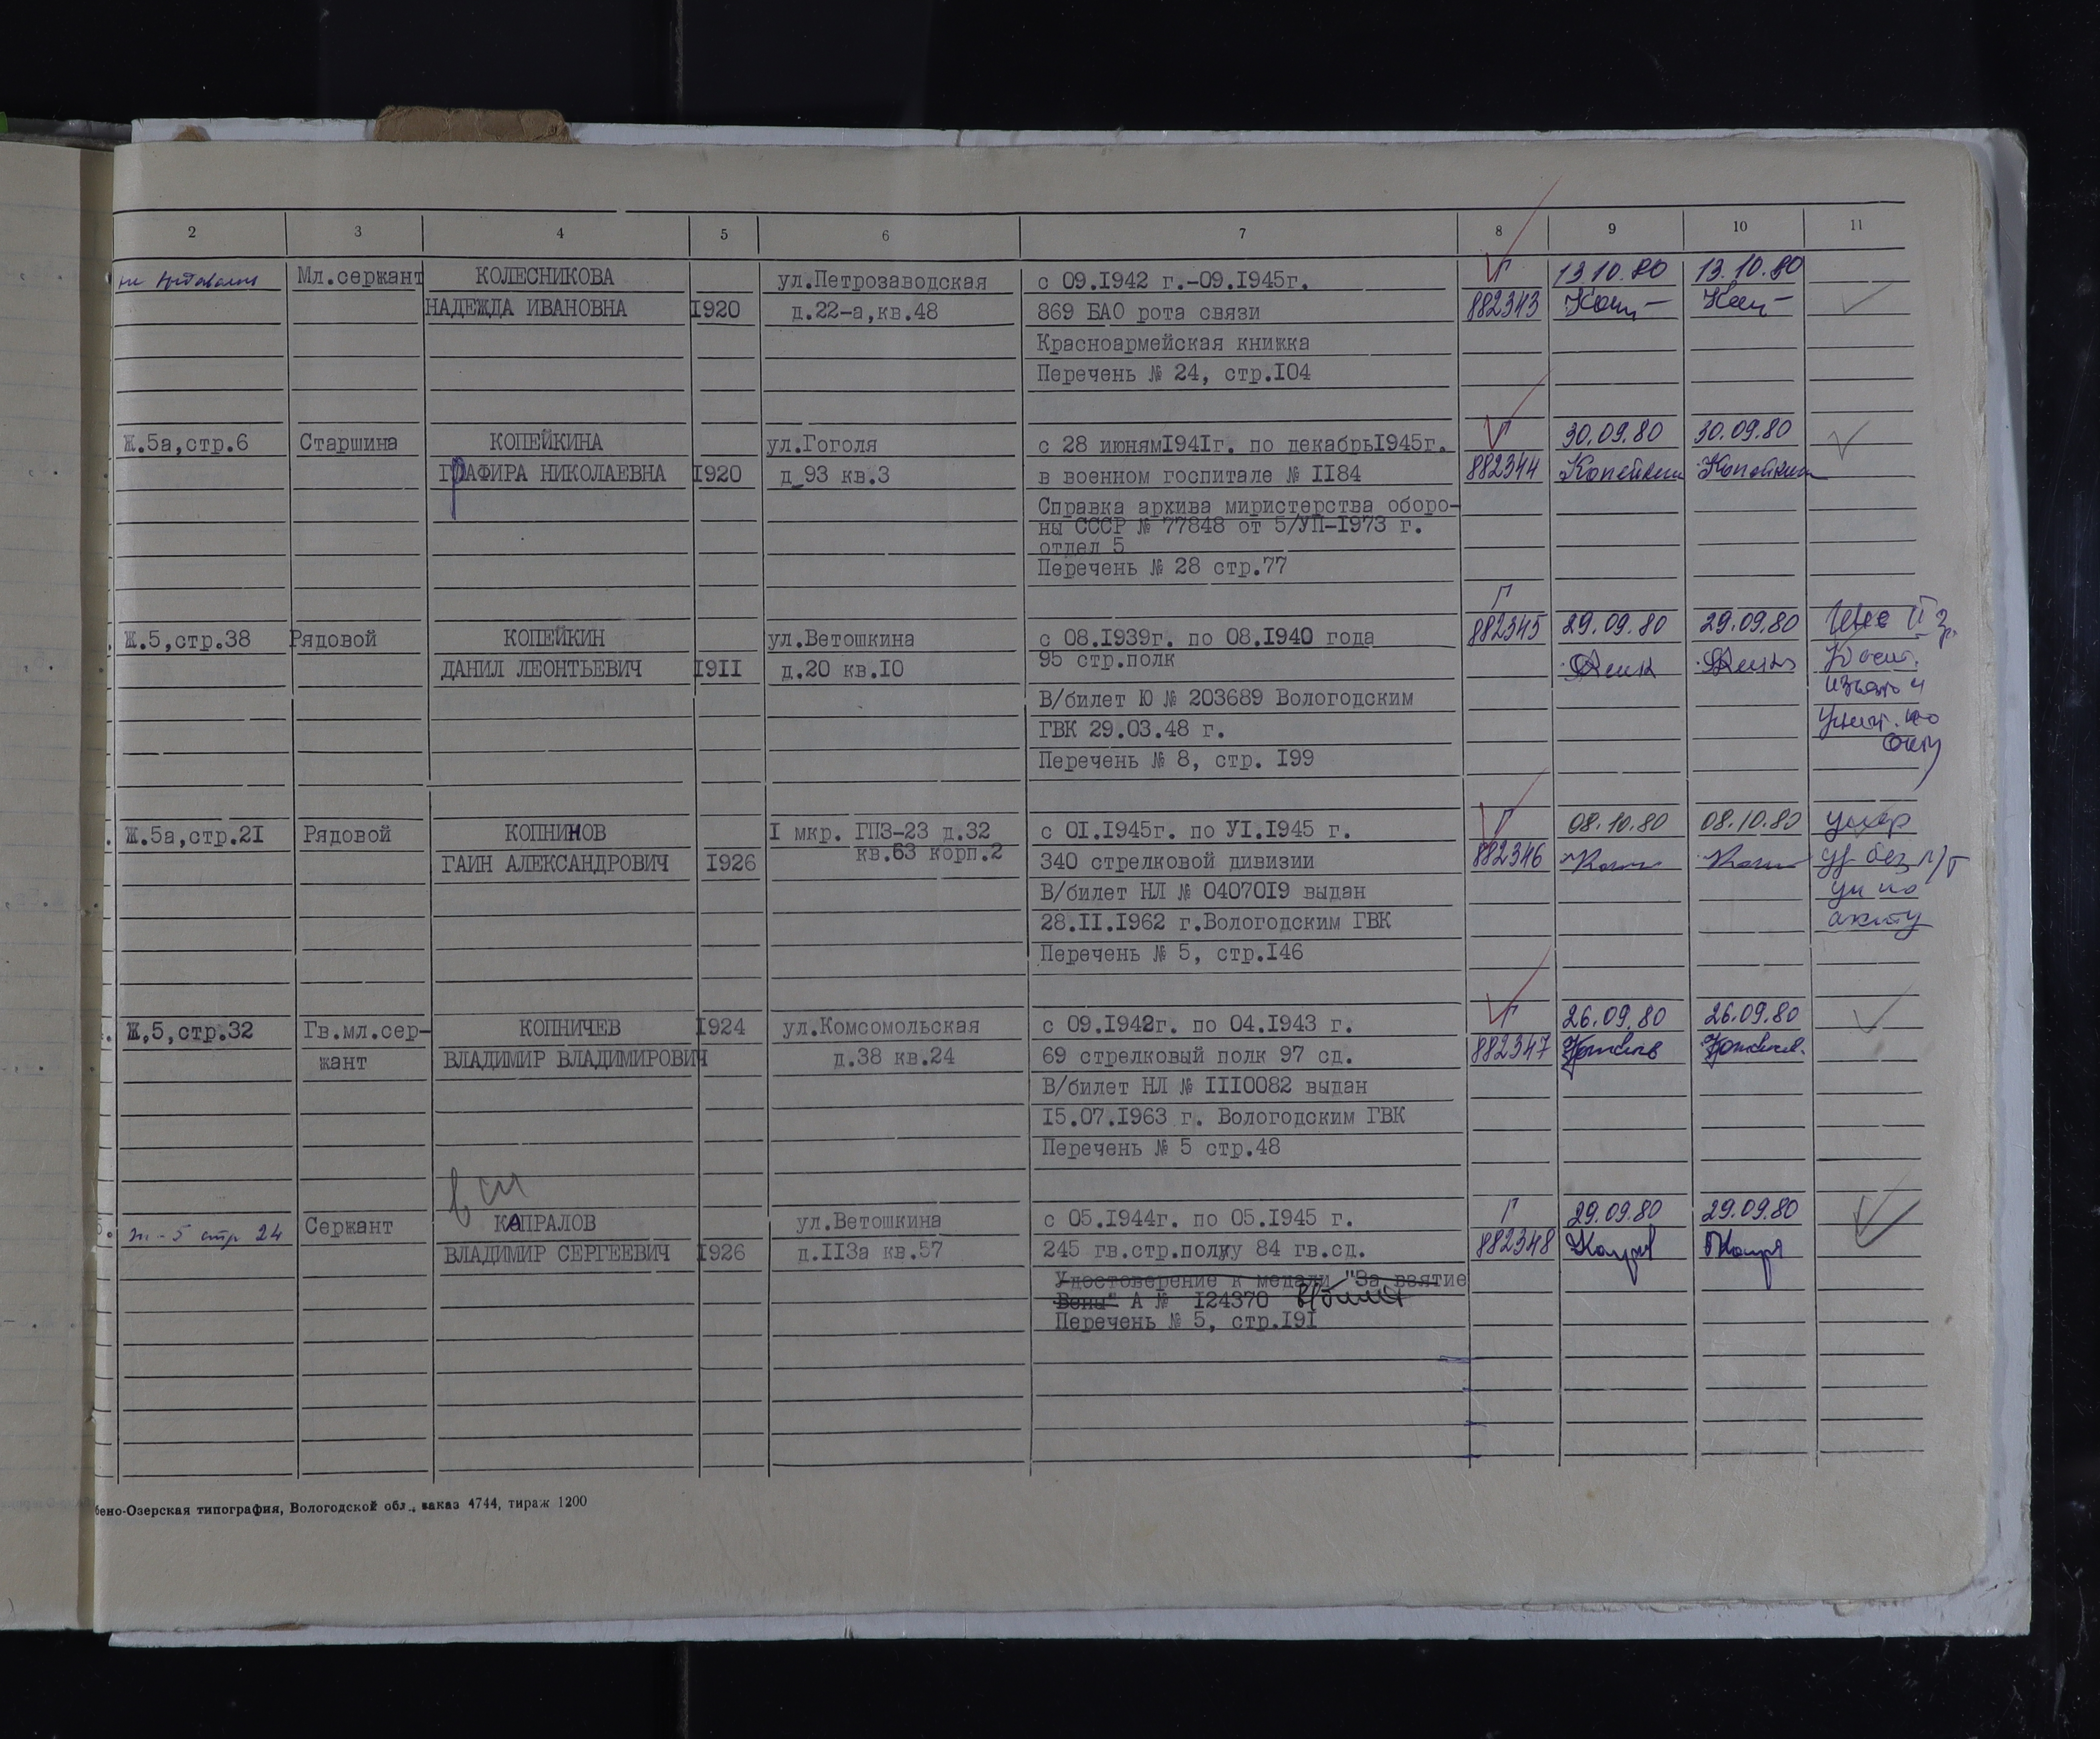 2 3 4 5 6 7 8 9 10 11
не Мл.сержант КОЛЕСНИКОВА ул.Петрозаводская с 09.I942 г.-09.I945г. Г 13.10.80 13.10.80
НАДЕЖДА ИВАНОВНА I920 д.22-а,кв.48 869 БАО рота связи 882343
Красноармейская книжка
Перечень № 24, стр.I04
Ж.5а,стр.6 Старшина КОПЕЙКИНА ул.Гоголя с 28 июням194Iг. по декабрьI945г. Г 30.09.80 30.09.80
ГРАФИРА НИКОЛАЕВНА I920 д 93 кв.3 в военном госпитале № II84 882344 Копейкин Копейкин
Справка архива миристерства оборо-
ны СССР № 77848 от 5/УП-I973 г.
отдел 5
Перечень № 28 стр.77
Г
Ж.5,стр.38 Рядовой КОПЕЙКИН ул.Ветошкина с 08.I939г. по 08.I940 года 882345 29.09.80 29.09.80
ДАНИЛ ЛЕОНТЬЕВИЧ I9II д.20 кв.I0 95 стр.полк
В/билет Ю № 203689 Вологодским изъят и
ГВК 29.03.48 г. по
Перечень № 8, стр. I99 акту
Ж.5а,стр.2I Рядовой КОПНИНОВ I мкр. ГПЗ-23 д.32 с 0I.I945г. по УI.I945 г. Г 08.10.80 08.10.80 умер
ГАИН АЛЕКСАНДРОВИЧ I926 кв.63 корп.2 340 стрелковой дивизии 882346 уд без
В/билет НЛ № 04070I9 выдан ун по
28.II.I962 г.Вологодским ГВК акту
Перечень № 5, стр.I46
Ж,5,стр.32 Гв.мл.сер- КОПНИЧЕВ I924 ул.Комсомольская с 09.I942г. по 04.I943 г. Г 26.09.80 26.09.80
жант ВЛАДИМИР ВЛАДИМИРОВИЧ д.38 кв.24 69 стрелковый полк 97 сд. 882347
В/билет НЛ № III0082 выдан
I5.07.I963 г. Вологодским ГВК
Перечень № 5 стр.48
ж-5 стр 24 Сержант КАПРАЛОВ ул.Ветошкина с 05.I944г. по 05.I945 г. Г 29.09.80 29.09.80
ВЛАДИМИР СЕРГЕЕВИЧ I926 д.II3а кв.57 245 гв.стр.полку 84 гв.сд. 882348
Удостоверение к медали "За взятие
Вены" А № I24370 в/билет
Перечень № 5, стр.I9I
бено-Озерская типография, Вологодской обл., заказ 4744, тираж 1200